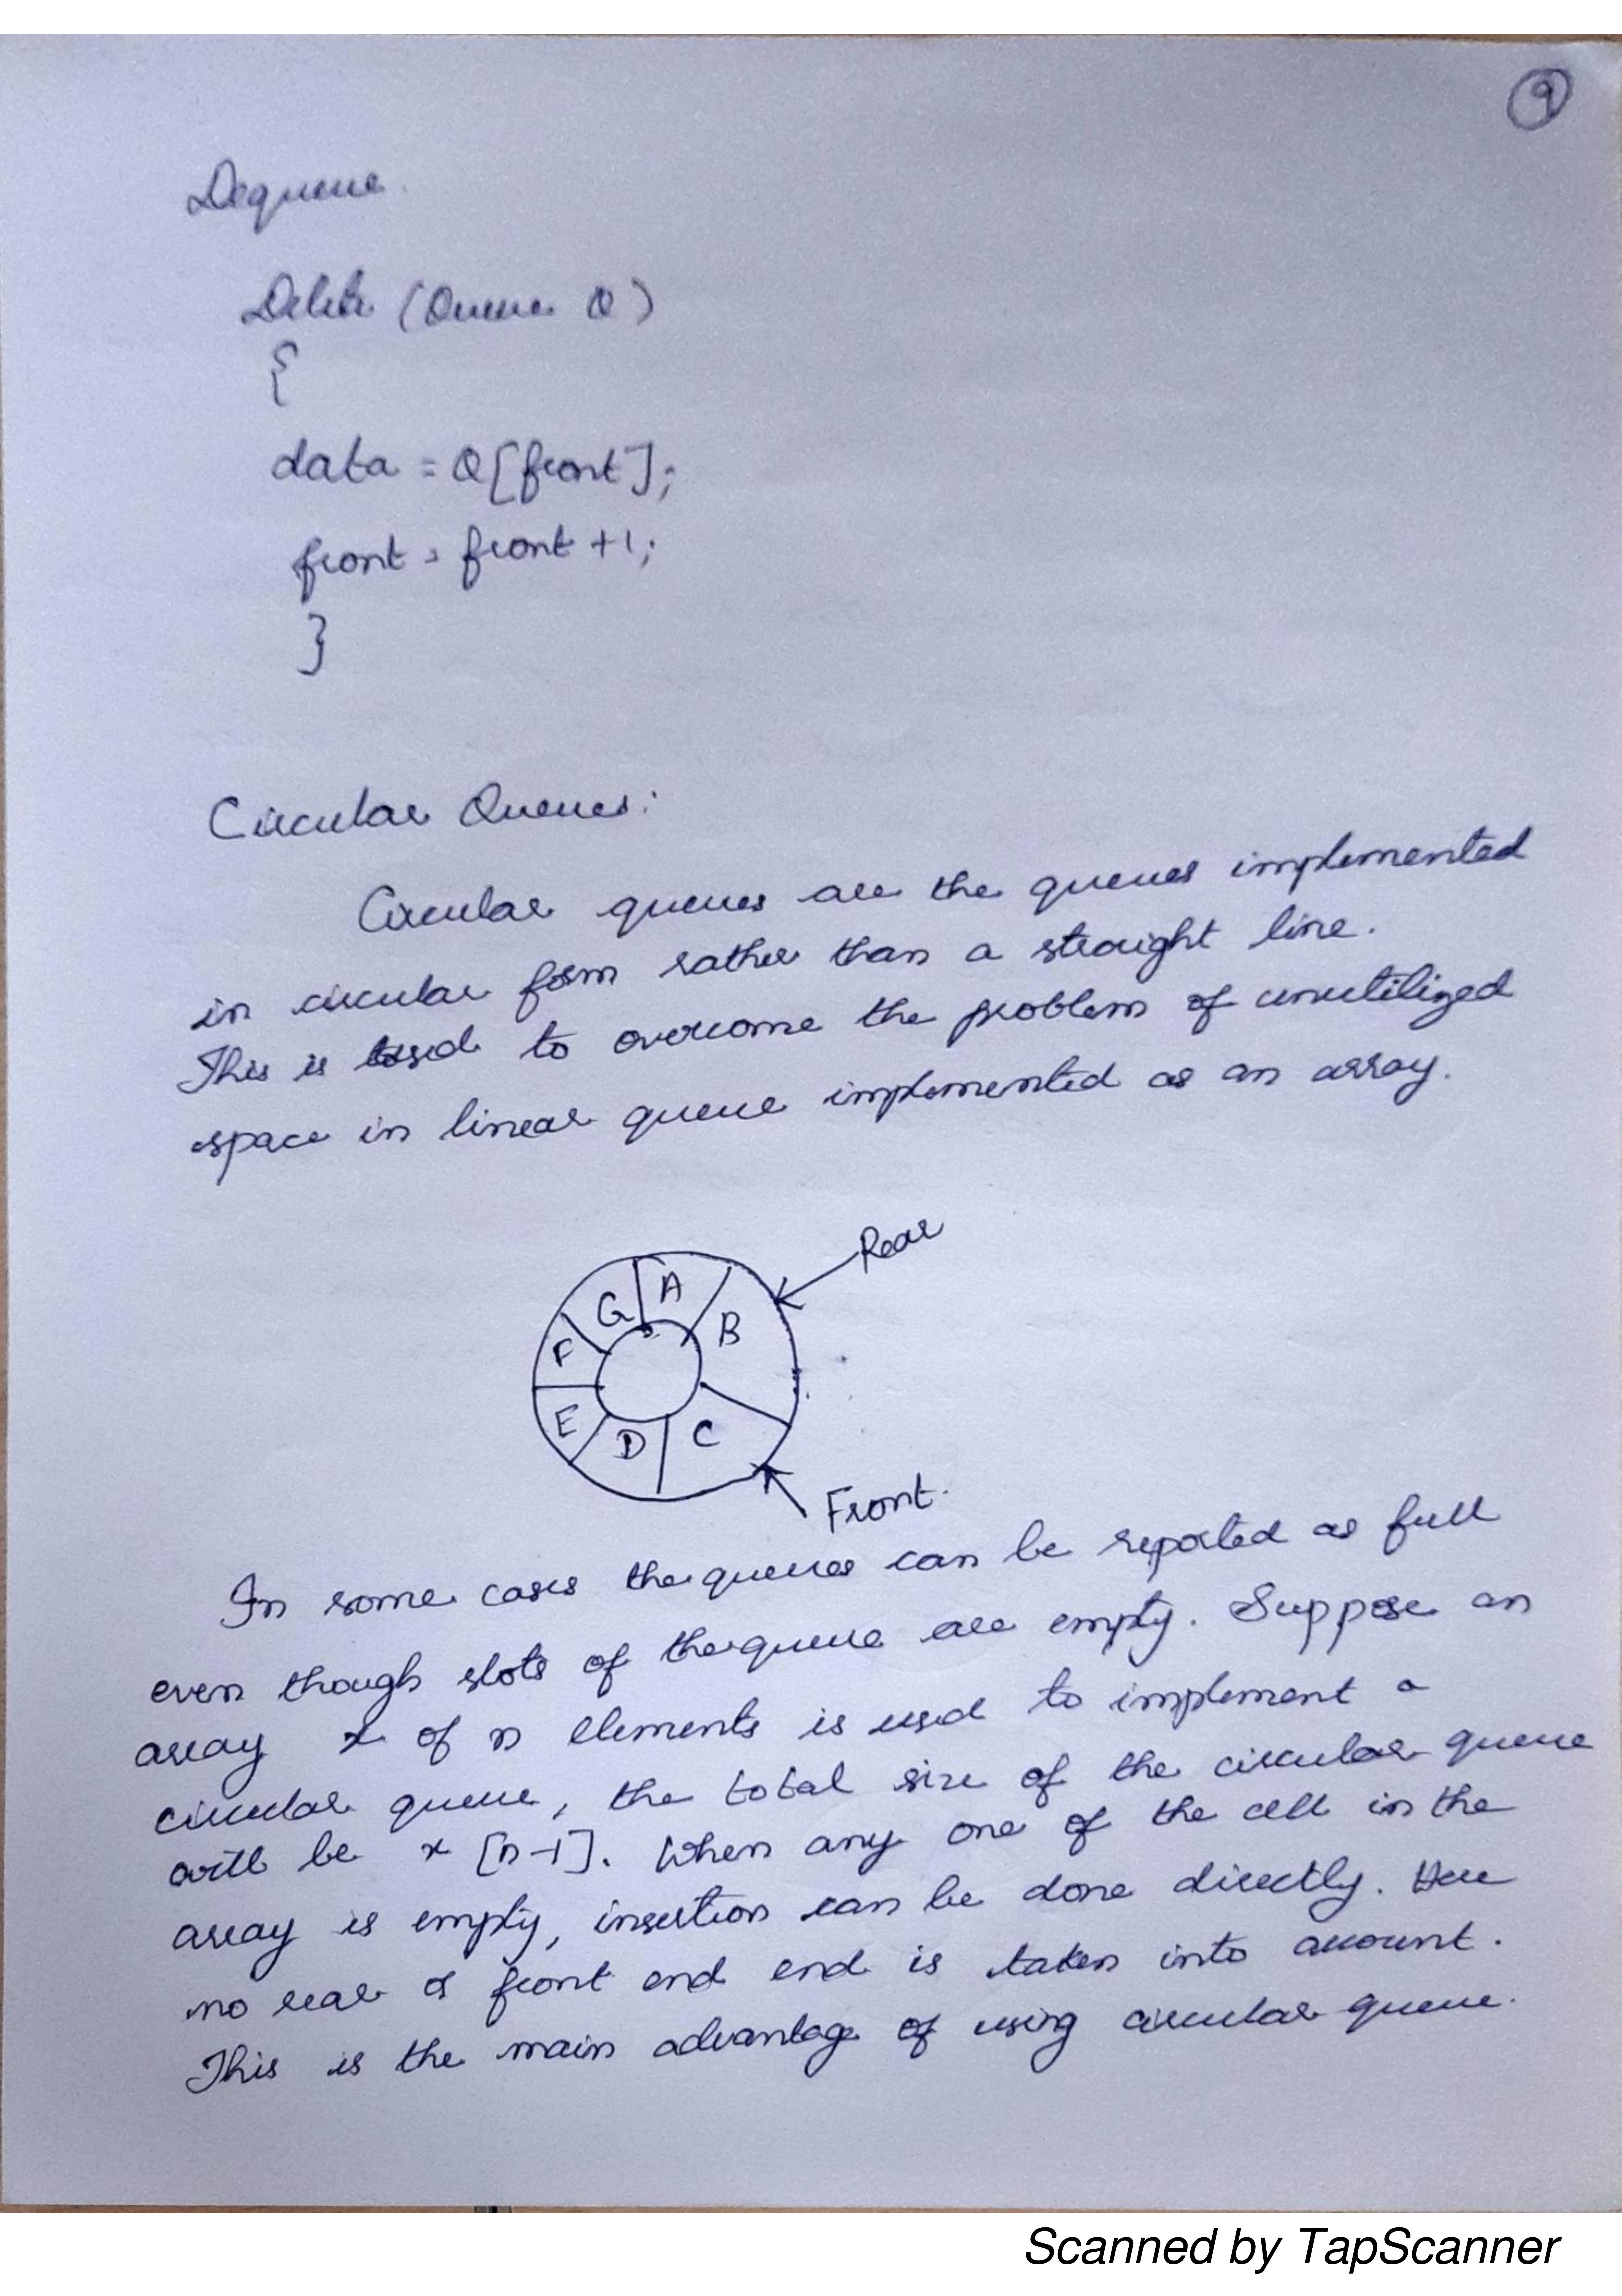 9
Dequeue.
Delete (Queue Q)
{
data = Q[front];
front = front +1;
}
Circular Queues:
Circular queues are the queues implemented
in circular form rather than a straight line.
This is used to overcome the problem of unutilized
space in linear queue implemented as an array.
Rear
A
G
B
F
E
D
C
Front.
In some cases the queues can be reported as full
even though slots of the queue are empty. Suppose an
array x of n elements is used to implement a
circular queue, the total size of the circular queue
will be x [n-1]. When any one of the cell in the
array is empty, insertion can be done directly. Here
no rear or front end end is taken into account.
This is the main advantage of using circular queue.
Scanned by TapScanner